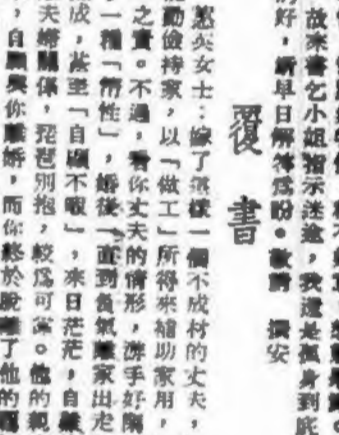 故來書乞小姐指示迷途，我還是孤身到底
好，祈早日解答爲盼。敬請　撰安
覆書
女士：嫁了這樣一個不成材的丈夫，
勤儉持家，以「做工」所得來補助家用，
之實。不過，看你丈夫的情形，游手好閒
一種「惰性」，婚後一直到負氣離家出走
成，甚至「自顧不暇」，來日茫茫，自
夫婦關係，琵琶別抱，較爲可。他的親
，自願與你離婚，而你終於脫離了他的